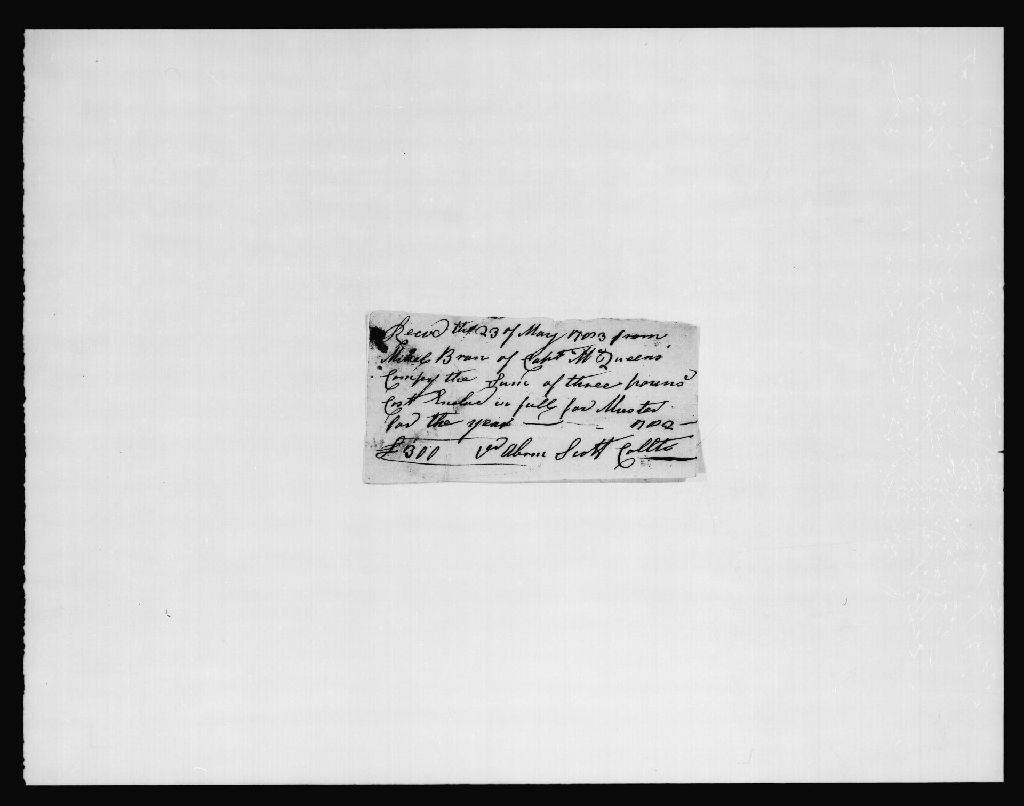 Recvd the 23 of May 1783 from
Mikel Bran of Capt McQueens
Compy the Sum of three pouns
Cost Enclud in full for Muster
for the year — 1782 —
£300 Abrm Scott Colltr